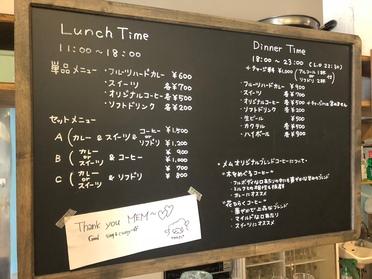 Lunch Time
11:00~18:00
単品メニュー
・フルーツハードカレー ¥600
・スイーツ 各¥700
・オリジナルコーヒー 各¥500
・ソフトドリンク 各¥200
セットメニュー
A (カレー & スイーツ & コーヒー ¥1,500
or
ソフドリ ¥1,200
B (カレー ¥900
or & コーヒー
スイーツ ¥1,000
C (カレー ¥700
or & ソフドリ
スイーツ ¥800
Thank you MEM~♡♡
Dinner Time
18:00 ~ 23:00 (L.O 22:30)
+チャージ料 ¥1,000
・フルーツハードカレー ¥900
・スイーツ ¥700
・オリジナルコーヒー ¥500
・ソフトドリンク ¥200
・生ビール ¥500
・カクテル ¥500
・ハイボール ¥500
・メムオリジナルブレンドコーヒーについて・
・カレーにオススメ
・マイルドな口当たり
・スイーツにオススメ